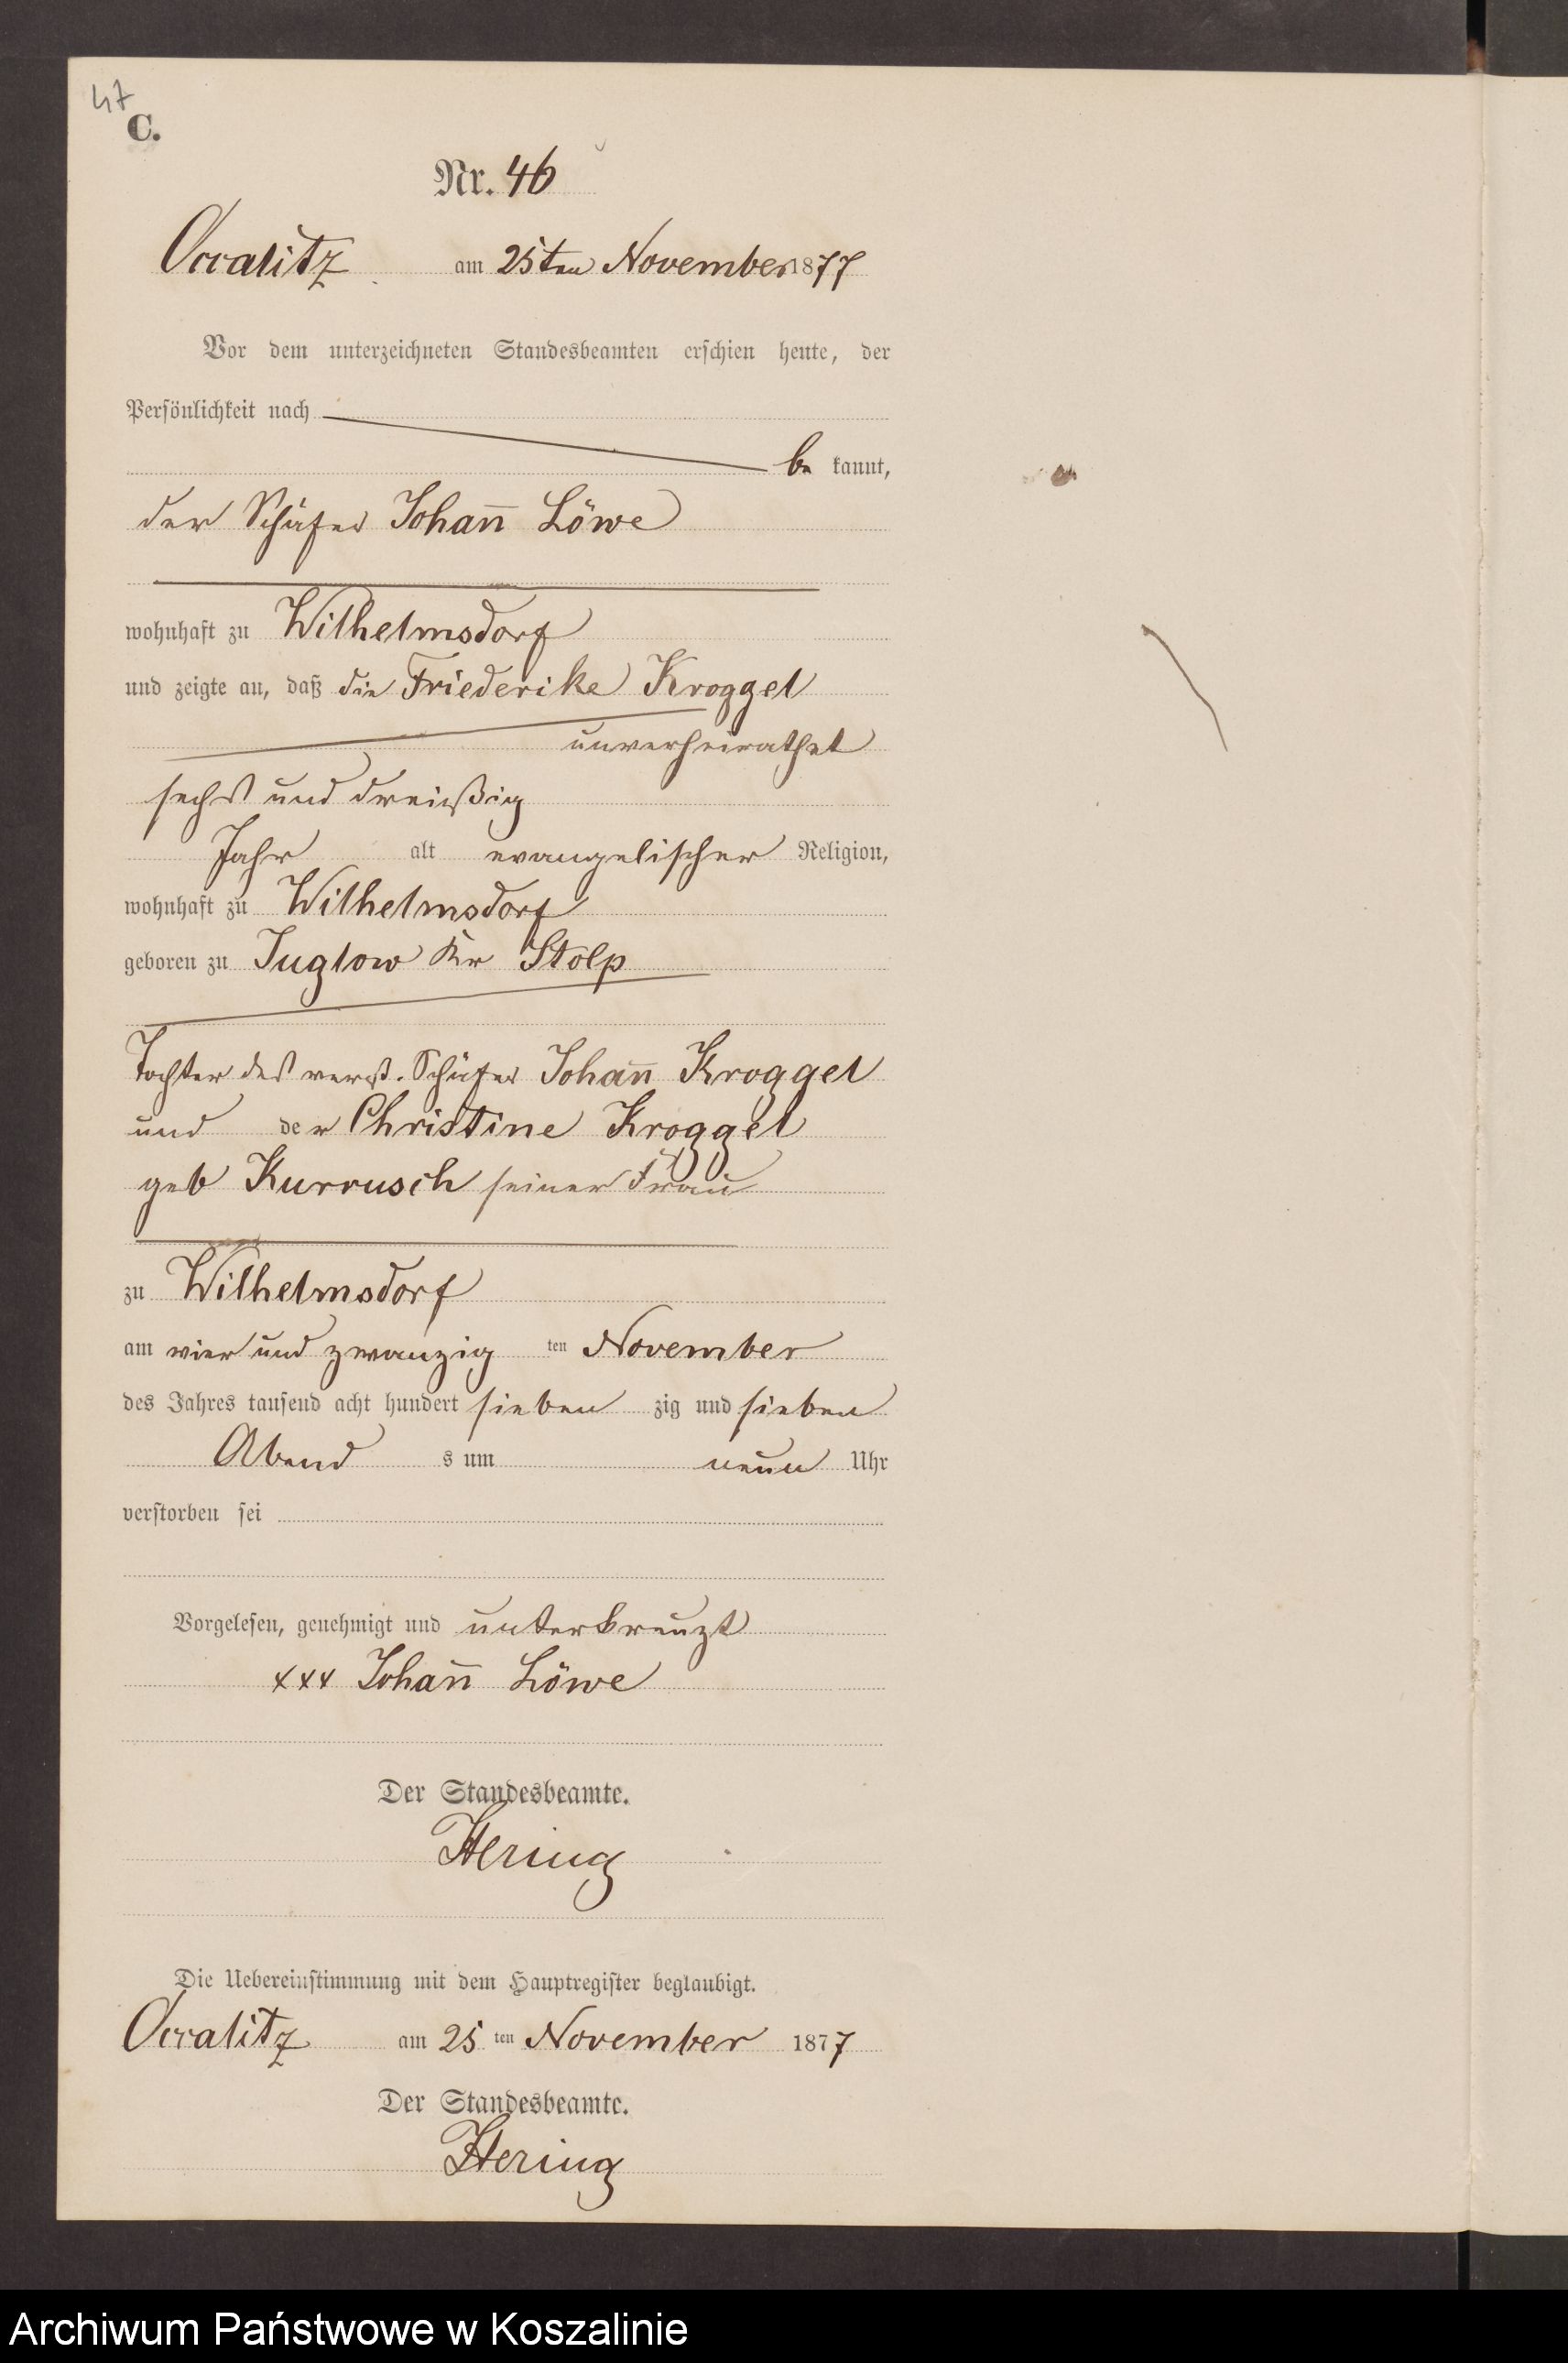 47
C.
Nr. 46
Occalitz am 25ten November 1877
Vor dem unterzeichneten Standesbeamten erschien heute, der
Persönlichkeit nach
be kannt,
der Schäfer Johann Löwe
wohnhaft zu Wilhelmsdorf
und zeigte an, daß die Friederike Kroggel
unverheirathet
sechs und dreißig
Jahr alt evangelischer Religion,
wohnhaft zu Wilhelmsdorf
geboren zu Juglow Kr Stolp
Tochter des verst. Schäfer Johann Kroggel
und der Christine Kroggel
geb Kurrusch seiner Frau
zu Wilhelmsdorf
am vier und zwanzig ten November
des Jahres tausend acht hundert sieben zig und sieben
Abend s um neun Uhr
verstorben sei
Vorgelesen, genehmigt und unterkreuzt
xxx Johann Löwe
Der Standesbeamte.
Hering
Die Uebereinstimmung mit dem Hauptregister beglaubigt.
Occalitz am 25 ten November 1877
Der Standesbeamte.
Hering
Archiwum Państwowe w Koszalinie